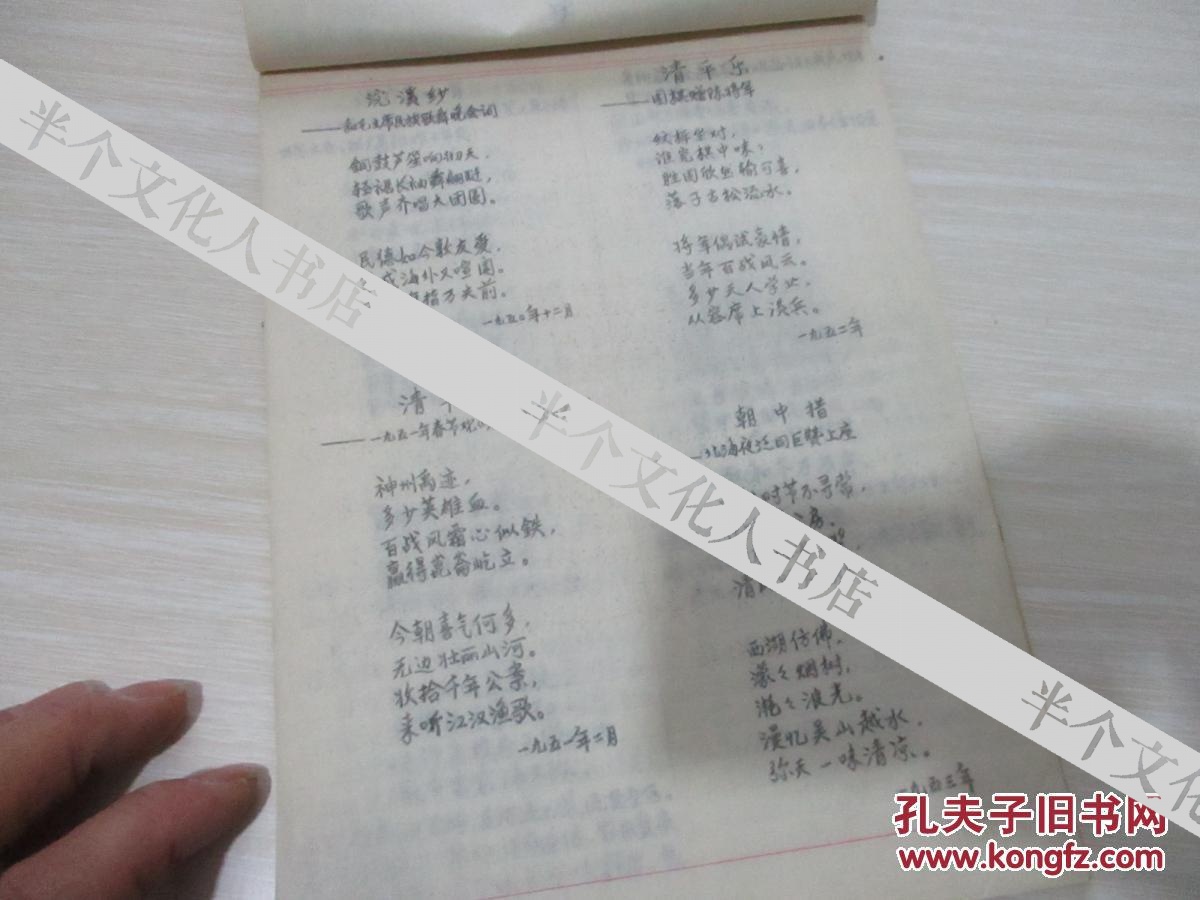 浣溪纱
——和毛主席民族歌舞晚会词
铜鼓芦笙响彻天，
轻裙长袖舞蹁跹，
歌声齐唱大团圆。
民德如今敦友爱，
海外又喧阗。
指万夫前。
一九五〇年十二月
清
——一九五一年春节观
神州禹迹，
多少英雄血。
百战风霜心似铁，
赢得崑崙屹立。
今朝喜气何多，
无边壮丽山河。
收拾千年公案，
来听江汉渔歌。
一九五一年二月
清平乐
——围棋赠陈将军
纹枰坐对，
谁究棋中味？
胜固欣然输可喜，
落子古松流水。
将军偶试豪情，
当年百战风云。
多少天人学业，
从容席上谈兵。
一九五二年
朝中措
—北海夜泛同巨赞上座
时节不寻常，
清
西湖仿佛，
濛々烟树，
滟々波光。
漫忆吴山越水，
弥天一味清凉。
一九五三年
半个文化人书店
半个文化人书店
半个文化人书店
孔夫子旧书网
www.kongfz.com